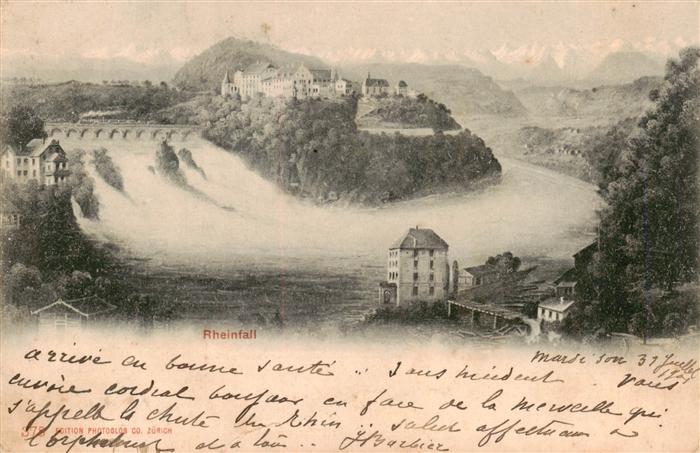 Rheinfall
Mardi soir 31 Juillet
arrivé en bonne santé .. Sans incident vous
envoie cordial bonjour en face de la merveille qui
s'appelle la chute du Rhin .. salut affectueux à
375 EDITION PHOTOGLOB CO. ZÜRICH
l' et à tous .. Barbier